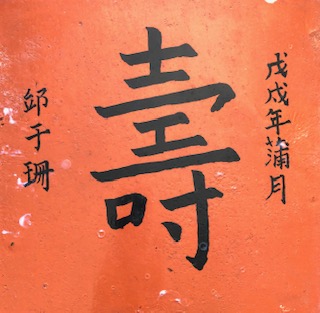 戊戌年蒲月
壽
邱于珊